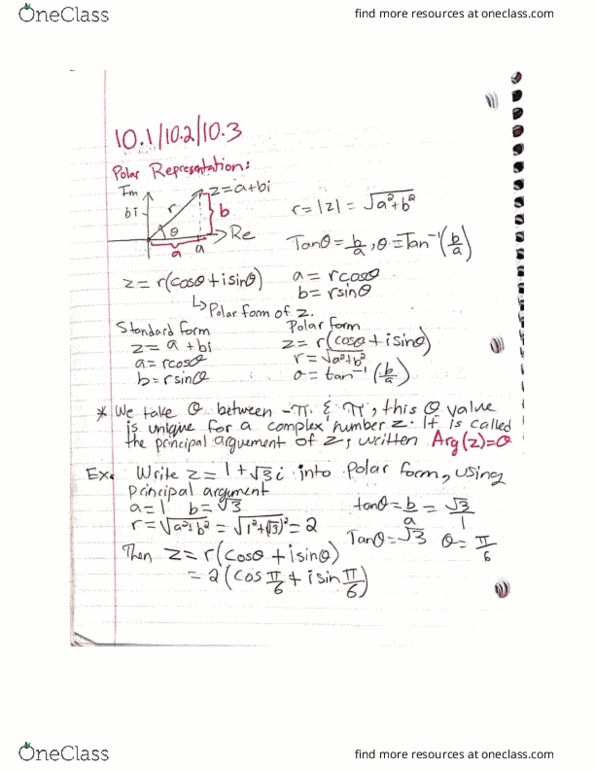 OneClass
find more resources at oneclass.com
10.1/10.2/10.3
Polar Representation:
Im
z=a+bi
bi
r
θ
b
Re
a
a
r = |z| = √a²+b²
Tanθ = b/a, θ = Tan⁻¹(b/a)
z = r(cosθ + i sinθ)
↳ Polar form of z.
a = rcosθ
b = rsinθ
Standard form
z = a + bi
a = rcosθ
b = rsinθ
Polar form
z = r(cosθ + i sinθ)
r = √a²+b²
θ = tan⁻¹(b/a)
* We take θ between -π & π, this θ value
is unique for a complex number z. It is called
the principal arguement of z, written Arg(z)=θ
Ex. Write z = 1 + √3 i into Polar form, using
principal argument
a = 1 b = √3
r = √a²+b² = √1²+(√3)² = 2
tanθ = b/a = √3/1
Tanθ = √3 θ = π/6
Then z = r(cosθ + i sinθ)
= 2(cos π/6 + i sin π/6)
OneClass
find more resources at oneclass.com